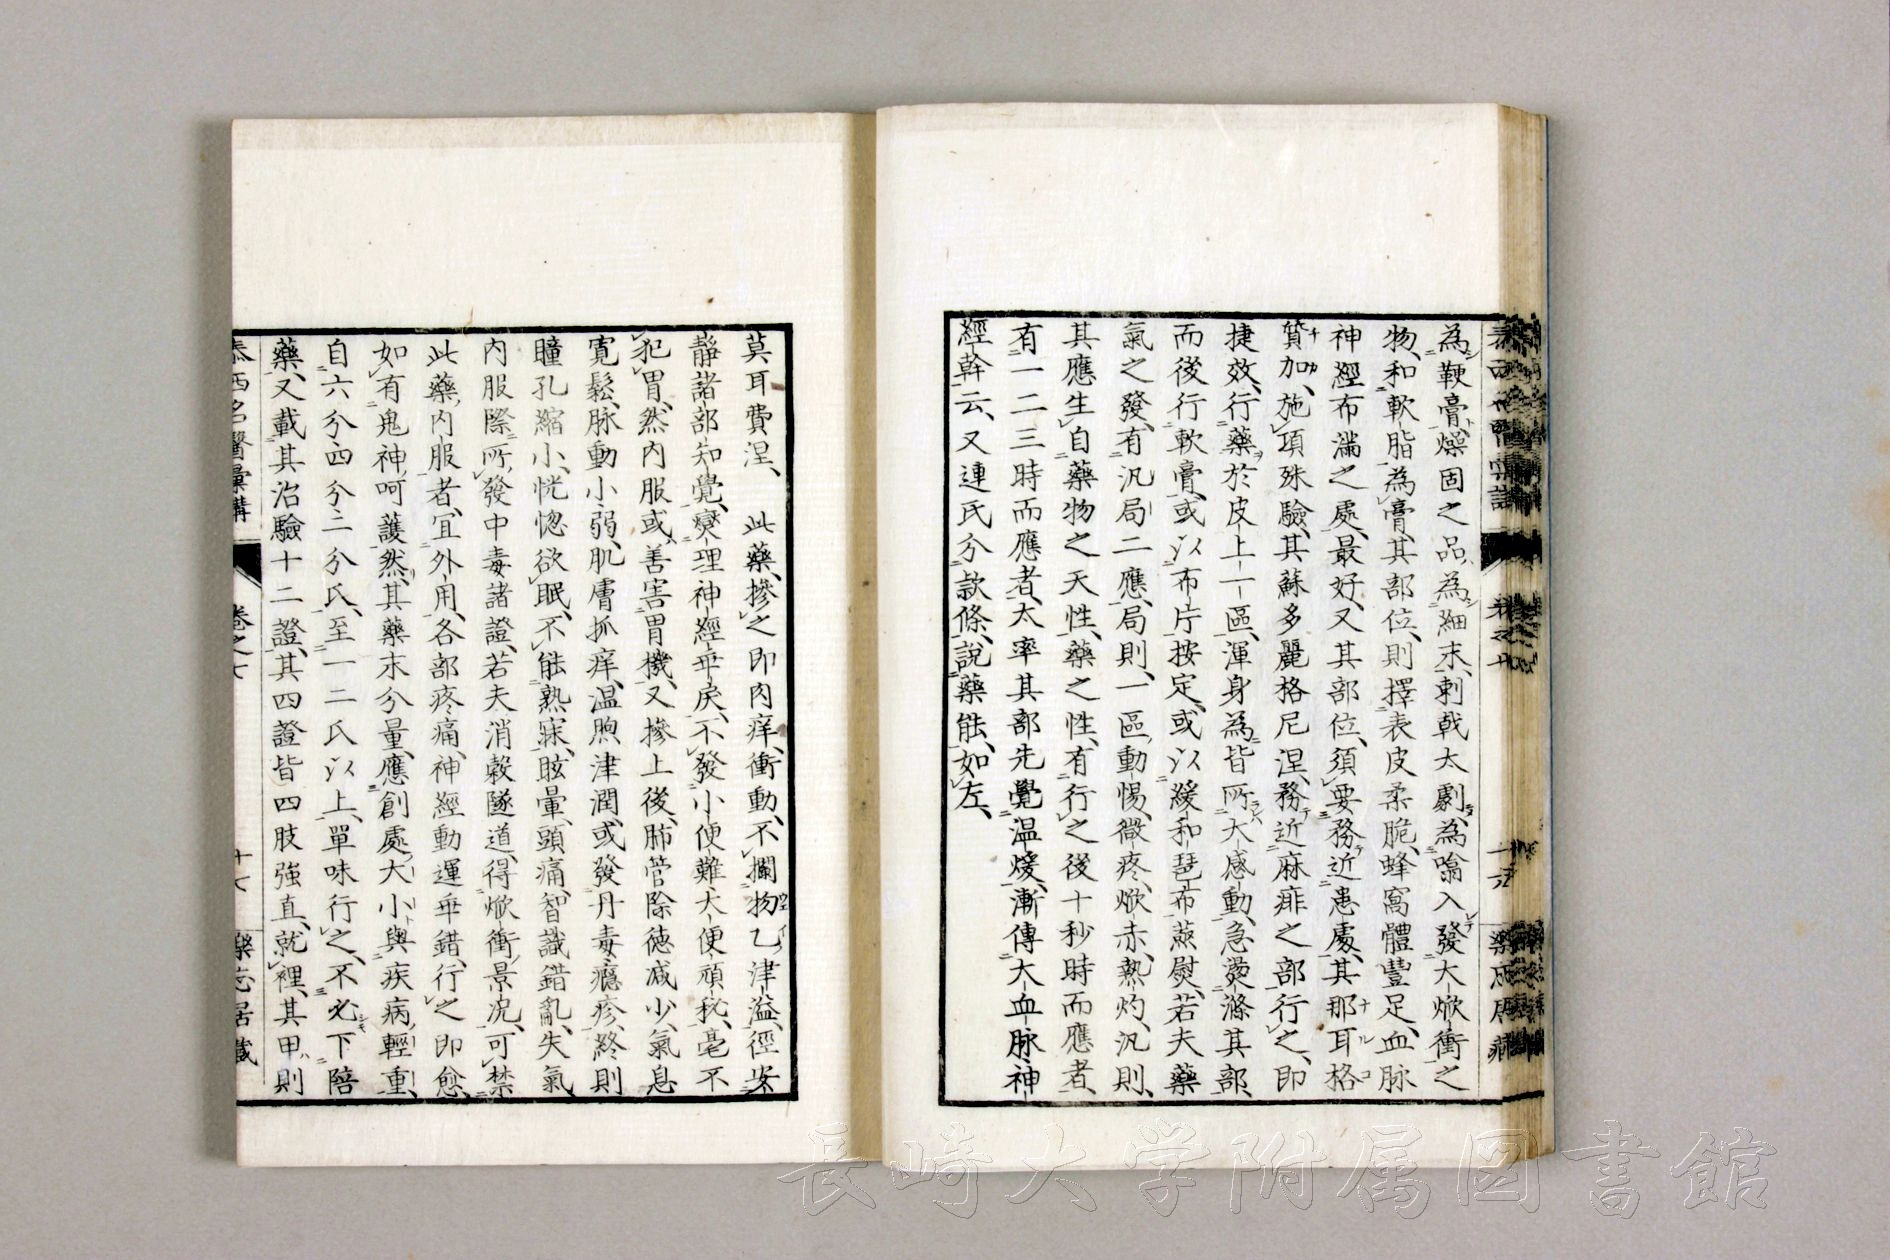 為鞕膏、燥固之品、為細末、刺戟太劇、為噏入發大焮衝之
物、和軟脂為膏、其部位、則擇表皮柔脆、蜂窩體豐足、血脉
神經布滿之處、最好、又其部位、須要務近患處、其那耳格
質加、施項殊驗、其蘇多麗格尼涅、務近麻痱之部行之、即
捷效、行藥於皮上一區、渾身為皆所大感動、急盪滌其部、
而後行軟膏、或以布片按定、或以緩和琶布蒸熨、若夫藥
氣之發、有汎局二應、局則、一區動惕、微疼、焮赤、熱灼、汎則、
其應生自藥物之天性、藥之性、有行之後十秒時而應者、
有一二三時而應者、太率其部先覺温煖、漸傳大血脉神
經幹云、又連氏分款條、説藥能、如左、
莫耳費涅、　此藥、摻之即肉痒、衝動、不攔物乙津溢、徑安
靜諸部知覺、燮理神經乖戾、不發小便難大便頑秘、毫不
犯胃、然内服或善害胃機、又摻上後、肺管除徳減少、氣息
寛鬆、脉動小弱、肌膚抓痒、温煦津潤、或發丹毒癮疹、終則
瞳孔縮小、恍惚欲眠、不能熟寐、眩暈、頭痛、智識錯亂、失氣
内服際所發中毒諸證、若夫消穀隧道、得焮衝景況、可禁
此藥、内服者、宜外用、各部疼痛、神經動運乖錯、行之即愈、
如有鬼神呵護然、其藥末分量、應創處大小與疾病輕重、
自六分四分二分氏、至一二氏以上、單味行之、不必下陪
藥、又載其治驗十二證、其四證皆四肢強直、就裡、其甲則
泰西名醫彙講　卷之七　十七　樂志居藏